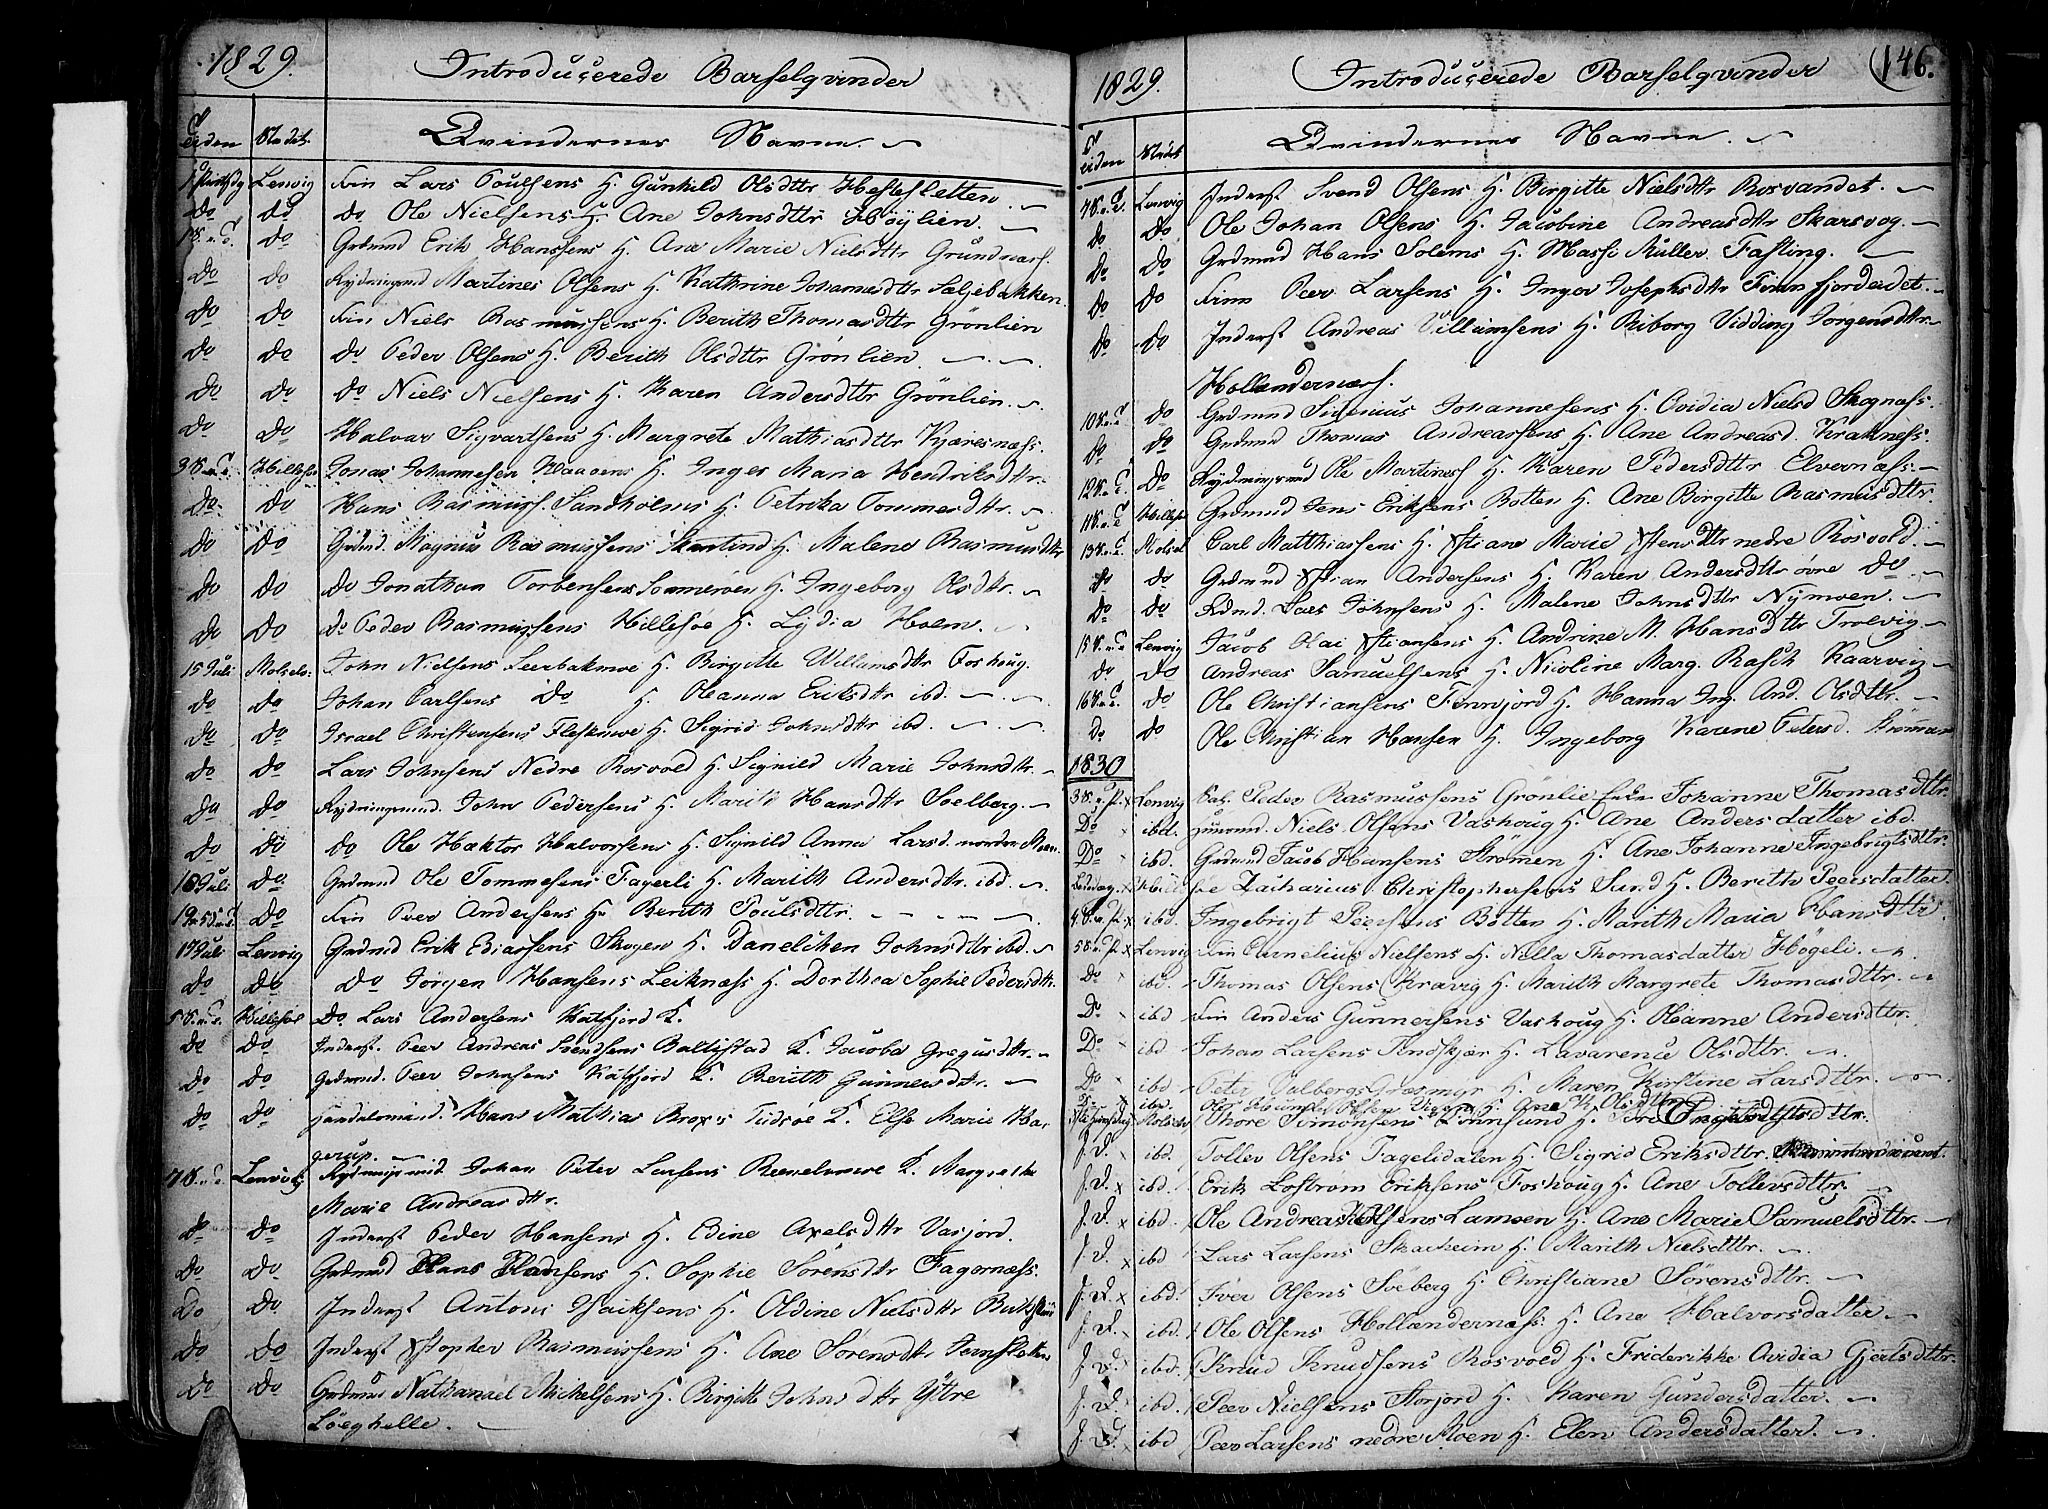 1829.
Introduçerede Barselqvinder
Tiden Stedet
Qvindernes Navne.
Lenvig Fin Lars Poulsens H. Gunhild Olsdttr Hestesletten.
Do Do Do Ole Nielsens H. Ane Johnsdttr Høylien.
Do Grdmnd Erik Hanssens H. Ane Marie Nielsdttr Grundnæs.
Do Do Rydningsmd Martines Olsens H. Kathrine Johannesdttr Seljebakken.
Do Do Fin Niels Rasmussens H. Berith Thomasdttr Grönlien
Do Do Do Peder Olsens H. Berith Olsdttr Grönlien.
Do Do Do Niels Nielsens H. Karen Andersdttr Grönlien.
Do Do Halvar Sigvartsens H. Margrete Mathiasdttr Kjæresnæss.
Hillesøe Jonas Johannesen Klaavens H. Inger Maria Hendriksdttr.
Do Do Hans Rasmuss. Sandholms H. Petrika Tommesdttr.
Do Do Grdmd. Magnus Rasmussens H. Malene Rasmusdttr
Do Do Do Jonathan Torbensens Sommerøen H. Ingeborg Olsdttr.
Do Do Do Peder Rasmussens Hillesöe H. Lydia Holm.
15 Juli Molselv: John Nielsens H. Birgitte Willumsdttr Foshoug.
Do Do Johan Carlsens Do H. Oleanna Eriksdttr ibd.
Do Do Israel Christensens Fleskmoe H. Sigrid Johnsdttr ibd.
Do Do Lars Johnsens Nedre Rosvold H. Signild Marie Johnsdttr.
Do Do Rydningsmd. John Pedersens H. Marith Hansdttr Solberg.
Do Do Do Ole Hæktor Halvorsens H. Signild Anna Larsd. nordre Moen.
16 Juli Do Grdmnd Ole Tommesens Fagerli H. Marith Andersdttr. ibd.
Do Fin Peer Andersens H. Berith Poulsdttr.
17 Juli Lenvig Grdmd Erik Eliassens Skogen H. Danelchen Johnsdttr ibd.
Do Do Do Jørgen Hansens Leiknæss H. Dorthea Sophie Pedersdtr.
Hillesøe Do Lars Andersens Katfjord K.
Do Do Inderst. Peer Andreas Svendsens Baltestad K. Jacoba Gregusdttr.
Do Do Grdmnd. Peer Johnsens Katfjord K. Berith Gunnersdttr.
Do Do Handelsmand. Hans Mathias Brox's Tudsøe K. Else Marie Ha-
gerup.
Lenvig Rydningsmd. Johan Peter Larsens K. Margrethe
Marie Andreasdttr.
Do Do Inderst Peder Hansens H. Edine Axelsdttr Vasjord.
Do Do Grdmnd Hans Hansens H. Sophie Sörensdttr Fagernæss.
Do Do Inderst Antoni Isaiksens H. Oldine Nielsdttr
Do Do Inderst Xstopher Rasmussens H. Ane Sörensdttr
Do Do Grdmnd Nathanael Michelsens H. Birgitte Johnsdttr Yttre
Löeghelle.
1829.
Introduçerede Barselqvinder
146.
Tiden Stedet
Qvindernes Navne.
Lenvig Inderst Svend Olsens H. Birgitte Nielsdttr Rosvandet.
Do Do Ole Johan Olsens H. Jacobine Andreasdttr Skarsvog
Do Do Grdmnd Hans Solems H. Massi Müller Fasting.
Do Do Finn Peer Larsens H. Inger Josephsdttr Finnfjordeidet.
Do Do Inderst Andreas Villumsens H. Riborg Vidding Jörgensdttr
Hollendernæss.
Do Grdmnd Sivenius Johannesens H. Ovidia Nielsd Skognæss
Do Do Grdmnd Thomas Andreassens H. Ane Andreasd. Kraknæss.
Do Rydningsmd Ole Martines H. Karen Pedersdttr Elvernæss
Hillesøe Grdmnd Jens Eriksens Botten H. Ane Birgitte Rasmusdttr.
Molselv Carl Matthiassens H. Xstiane Marie Xstensdttr nedre Rosvold.
Do Do Grdmnd Xstian Andersens H. Karen Andersdttr øvre Do
Do Do Rdmd. Lars Johnsens H. Malene Johnsdttr Nymoen.
Lenvig Jacob Olai Xstiansens H. Andrine M. Hansdttr Trolvig
Do Do Andreas Samuelsens H. Nicoline Marg. Rasch Kaarvig
Do Ole Christiansens Finnjord H. Hanna Ing. And. Olsdttr.
Do Do Ole Christian Hansen H. Ingeborg Karene Pedersd.
1830
Lenvig Peder Rasmussens Grönlie Johanne Thomasdttr.
Do ibd. Niels Olsens Vashoug H. Ane Andersdatter ibd.
Do ibd. Grdmd Jacob Hansens Strömen H. Ane Johanne Ingebrigtsdttr.
Zacharias Christophersens Sund H. Berith Peersdatter.
ibd. Ingebrigt Peersens Botten H. Marith Maria Hansdttr.
Lenvig Fin Cornelius Nielsens H. Nella Thomasdatter Högeli.
Do ibd. Thomas Olsens Kravig H. Marith Margrete Thomasdttr.
Do ibd Fin Anders Gunnersens Vashoug H. Oleanne Andersdttr.
Do ibd Johan Larsens Tendskjær H. Lavarence Olsdttr.
Do ibd Peter Valbergs Græsmyr H. Maren Kirstine Larsdttr.
ibd. Olsdttr
Molselv Thore Simonsens H. Ingebrigtsdttr.
J. D. ibd. Toller Olsens Fagelidalen H. Sigrid Eriksdttr.
J. D. ibd. Erik Lostrom Eriksens Foshoug H. Ane Tollersdttr.
J. D. ibd. Ole Andreas Olsens H. Ane Marie Samuelsdttr.
J. D. ibd Lars Larsens H. Marith Nielsdttr.
J. D. ibd. Iver Olsens Soeberg H. Christiane Sörensdttr.
J. D. ibd. Ole Olsens Hollændernæss H. Ane Halvorsdatter
J. D. ibd. Knud Knudsens Rosvold H. Friderikke Ovidia Gjertsdttr.
J. D. ibd. Peer Nielsens Storjord H. Karen Gundersdatter.
J. D. ibd Peer Larsens nedre Moen H. Elen Andersdatter.